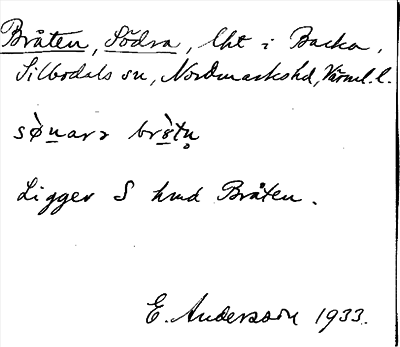 Bråten, Södra, lht i Backa,
Silbodals sn, Nordmarks hd, Värml. l.
sø̀nara brɔ̀tn̥
Ligger S hmd Bråten.
E. Andersson 1933.